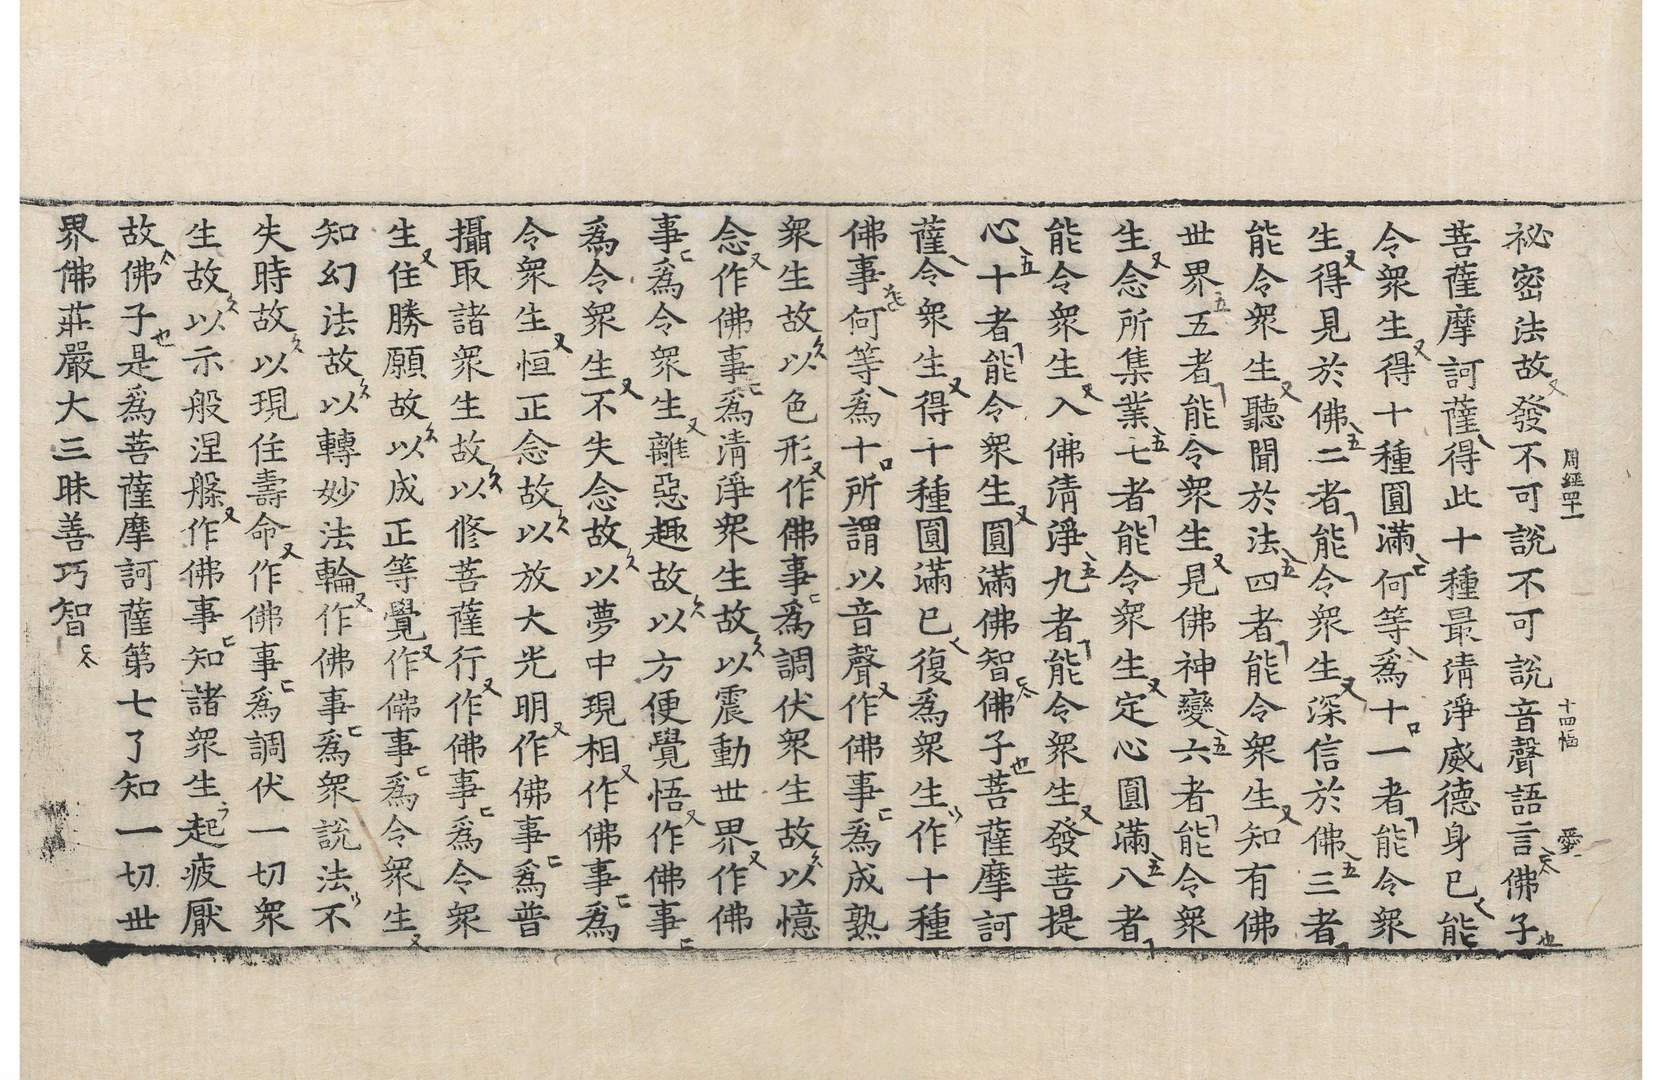 祕密法故發不可說不可說音聲語言佛子
菩薩摩訶薩得此十種最清淨威德身已能
令衆生得十種圓滿何等爲十一者能令衆
生得見於佛二者能令衆生深信於佛三者
能令衆生聽聞於法四者能令衆生知有佛
世界五者能令衆生見佛神變六者能令衆
生念所集業七者能令衆生定心圓滿八者
能令衆生入佛清淨九者能令衆生發菩提
心十者能令衆生圓滿佛智佛子菩薩摩訶
薩令衆生得十種圓滿已復爲衆生作十種
佛事何等爲十所謂以音聲作佛事爲成熟
衆生故以色形作佛事爲調伏衆生故以憶
念作佛事爲清淨衆生故以震動世界作佛
事爲令衆生離惡趣故以方便覺悟作佛事
爲令衆生不失念故以夢中現相作佛事爲
令衆生恒正念故以放大光明作佛事爲普
攝取諸衆生故以修菩薩行作佛事爲令衆
生住勝願故以成正等覺作佛事爲令衆生
知幻法故以轉妙法輪作佛事爲衆說法不
失時故以現住壽命作佛事爲調伏一切衆
生故以示般涅槃作佛事知諸衆生起疲厭
故佛子是爲菩薩摩訶薩第七了知一切世
界佛莊嚴大三昧善巧智